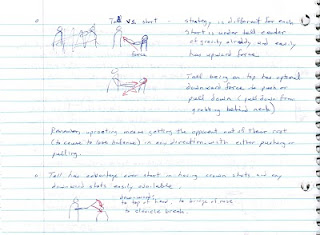 Tall vs. short - strategy is different for each
short is under tall center
of gravity already and easily
has upward force
force
Tall being on top has optional
downward force to push or
pull down (pull down from
grabbing behind neck)
Remember, uprooting means getting the opponent out of their root
(to cause to lose balance) in any direction with either pushing or
pulling.
Tall has advantage over short in having crown shots and any
downward shots easily available.
downward
to top of head, to bridge of nose
to clavicle break.